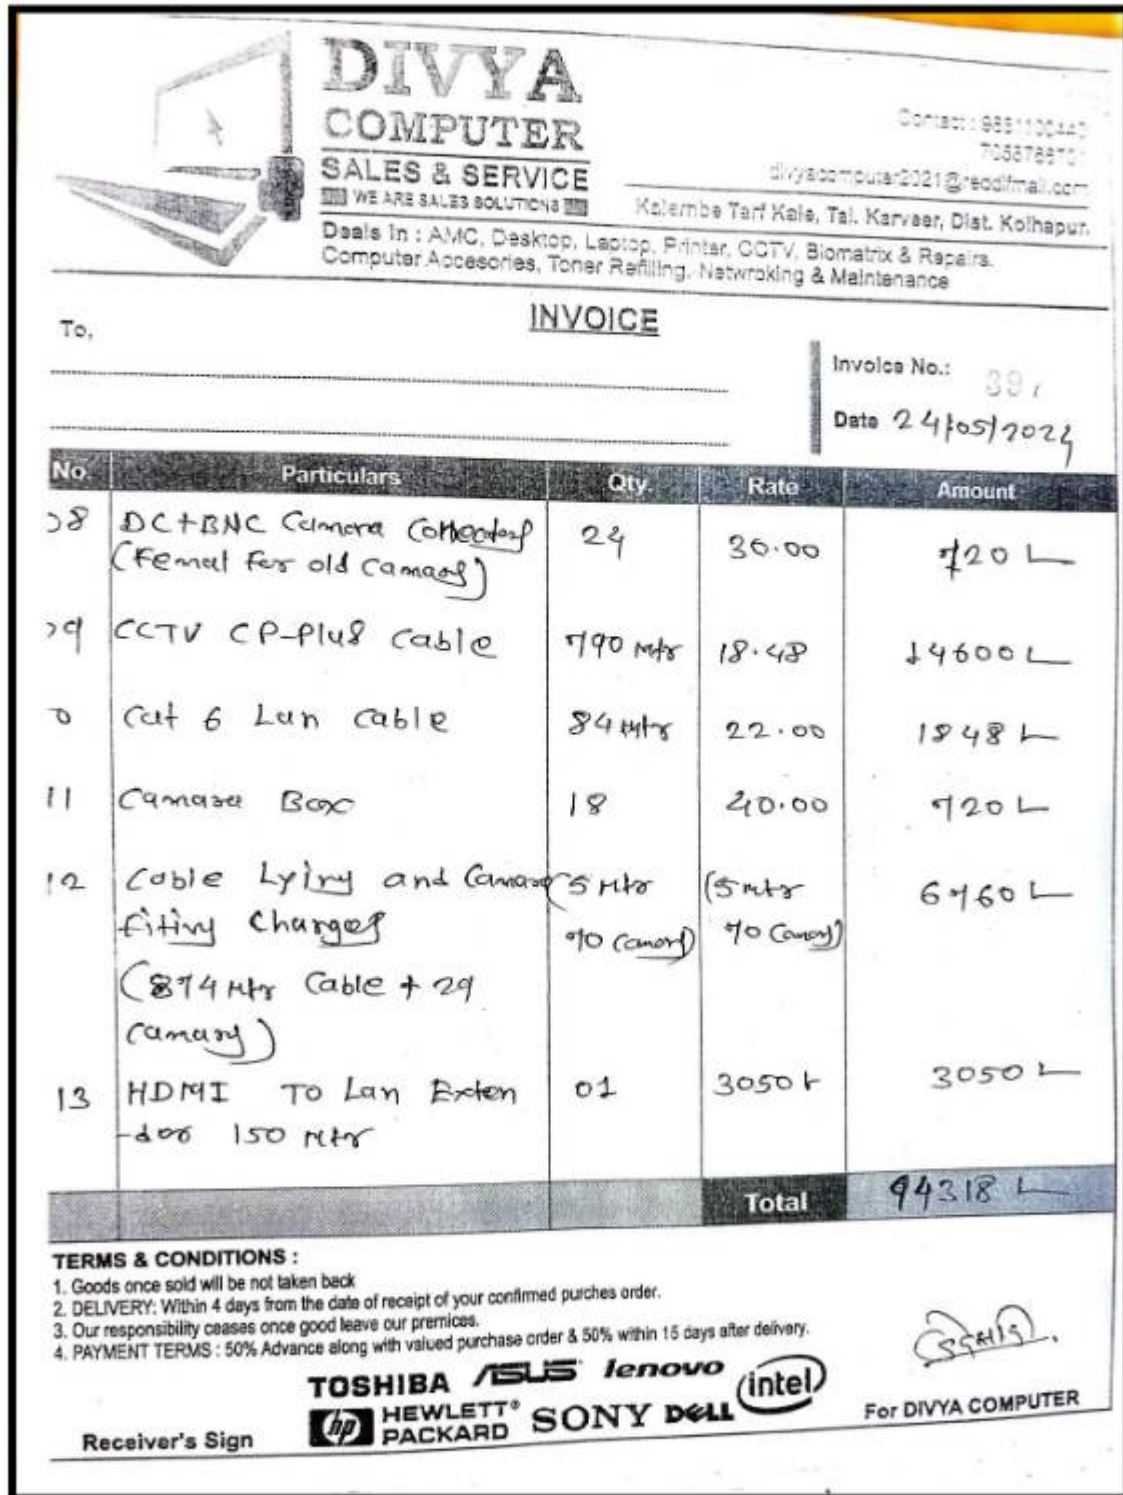 DIVYA
COMPUTER
SALES & SERVICE
WE ARE SALES SOLUTIONS
Contact : 9881100440
divyacomputer2021@rediffmail.com
Kalembe Tarf Kale, Tal. Karveer, Dist. Kolhapur.
Deals In : AMC, Desktop, Laptop, Printer, CCTV, Biomatrix & Repairs.
Computer Accesories, Toner Refilling, Netwroking & Maintenance
INVOICE
To,
Invoice No.: 397
Date 24/05/2024
No. Particulars Qty. Rate Amount
08 DC+BNC Camera 24 30.00 720
(Femal For old Camaras)
09 CCTV CP-Plus Cable 790 Mtr 18.48 14600
0 Cat 6 Lan Cable 84 Mtr 22.00 1848
11 Camara Box 18 40.00 720
12 Cable Lying and Camara (5 Mtr (5 Mtr 6760
fiting Charges 70 Camara) 70 Camara)
(874 Mtr Cable + 29
Camaras)
13 HDMI To Lan Exten 01 3050 3050
-dor 150 Mtr
Total 94318
TERMS & CONDITIONS :
1. Goods once sold will be not taken back
2. DELIVERY: Within 4 days from the date of receipt of your confirmed purches order.
3. Our responsibility ceases once good leave our premices.
4. PAYMENT TERMS : 50% Advance along with valued purchase order & 50% within 15 days after delivery.
TOSHIBA ASUS lenovo intel
hp HEWLETT PACKARD SONY DELL
Receiver's Sign
For DIVYA COMPUTER